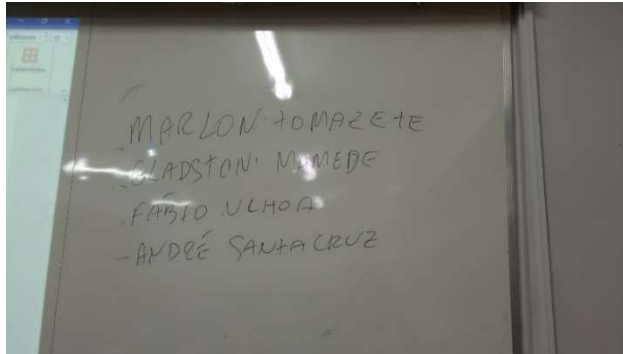 MARLON TOMAZETE
- GLADSTON MAMEDE
. FÁBIO ULHOA
- ANDRÉ SANTACRUZ